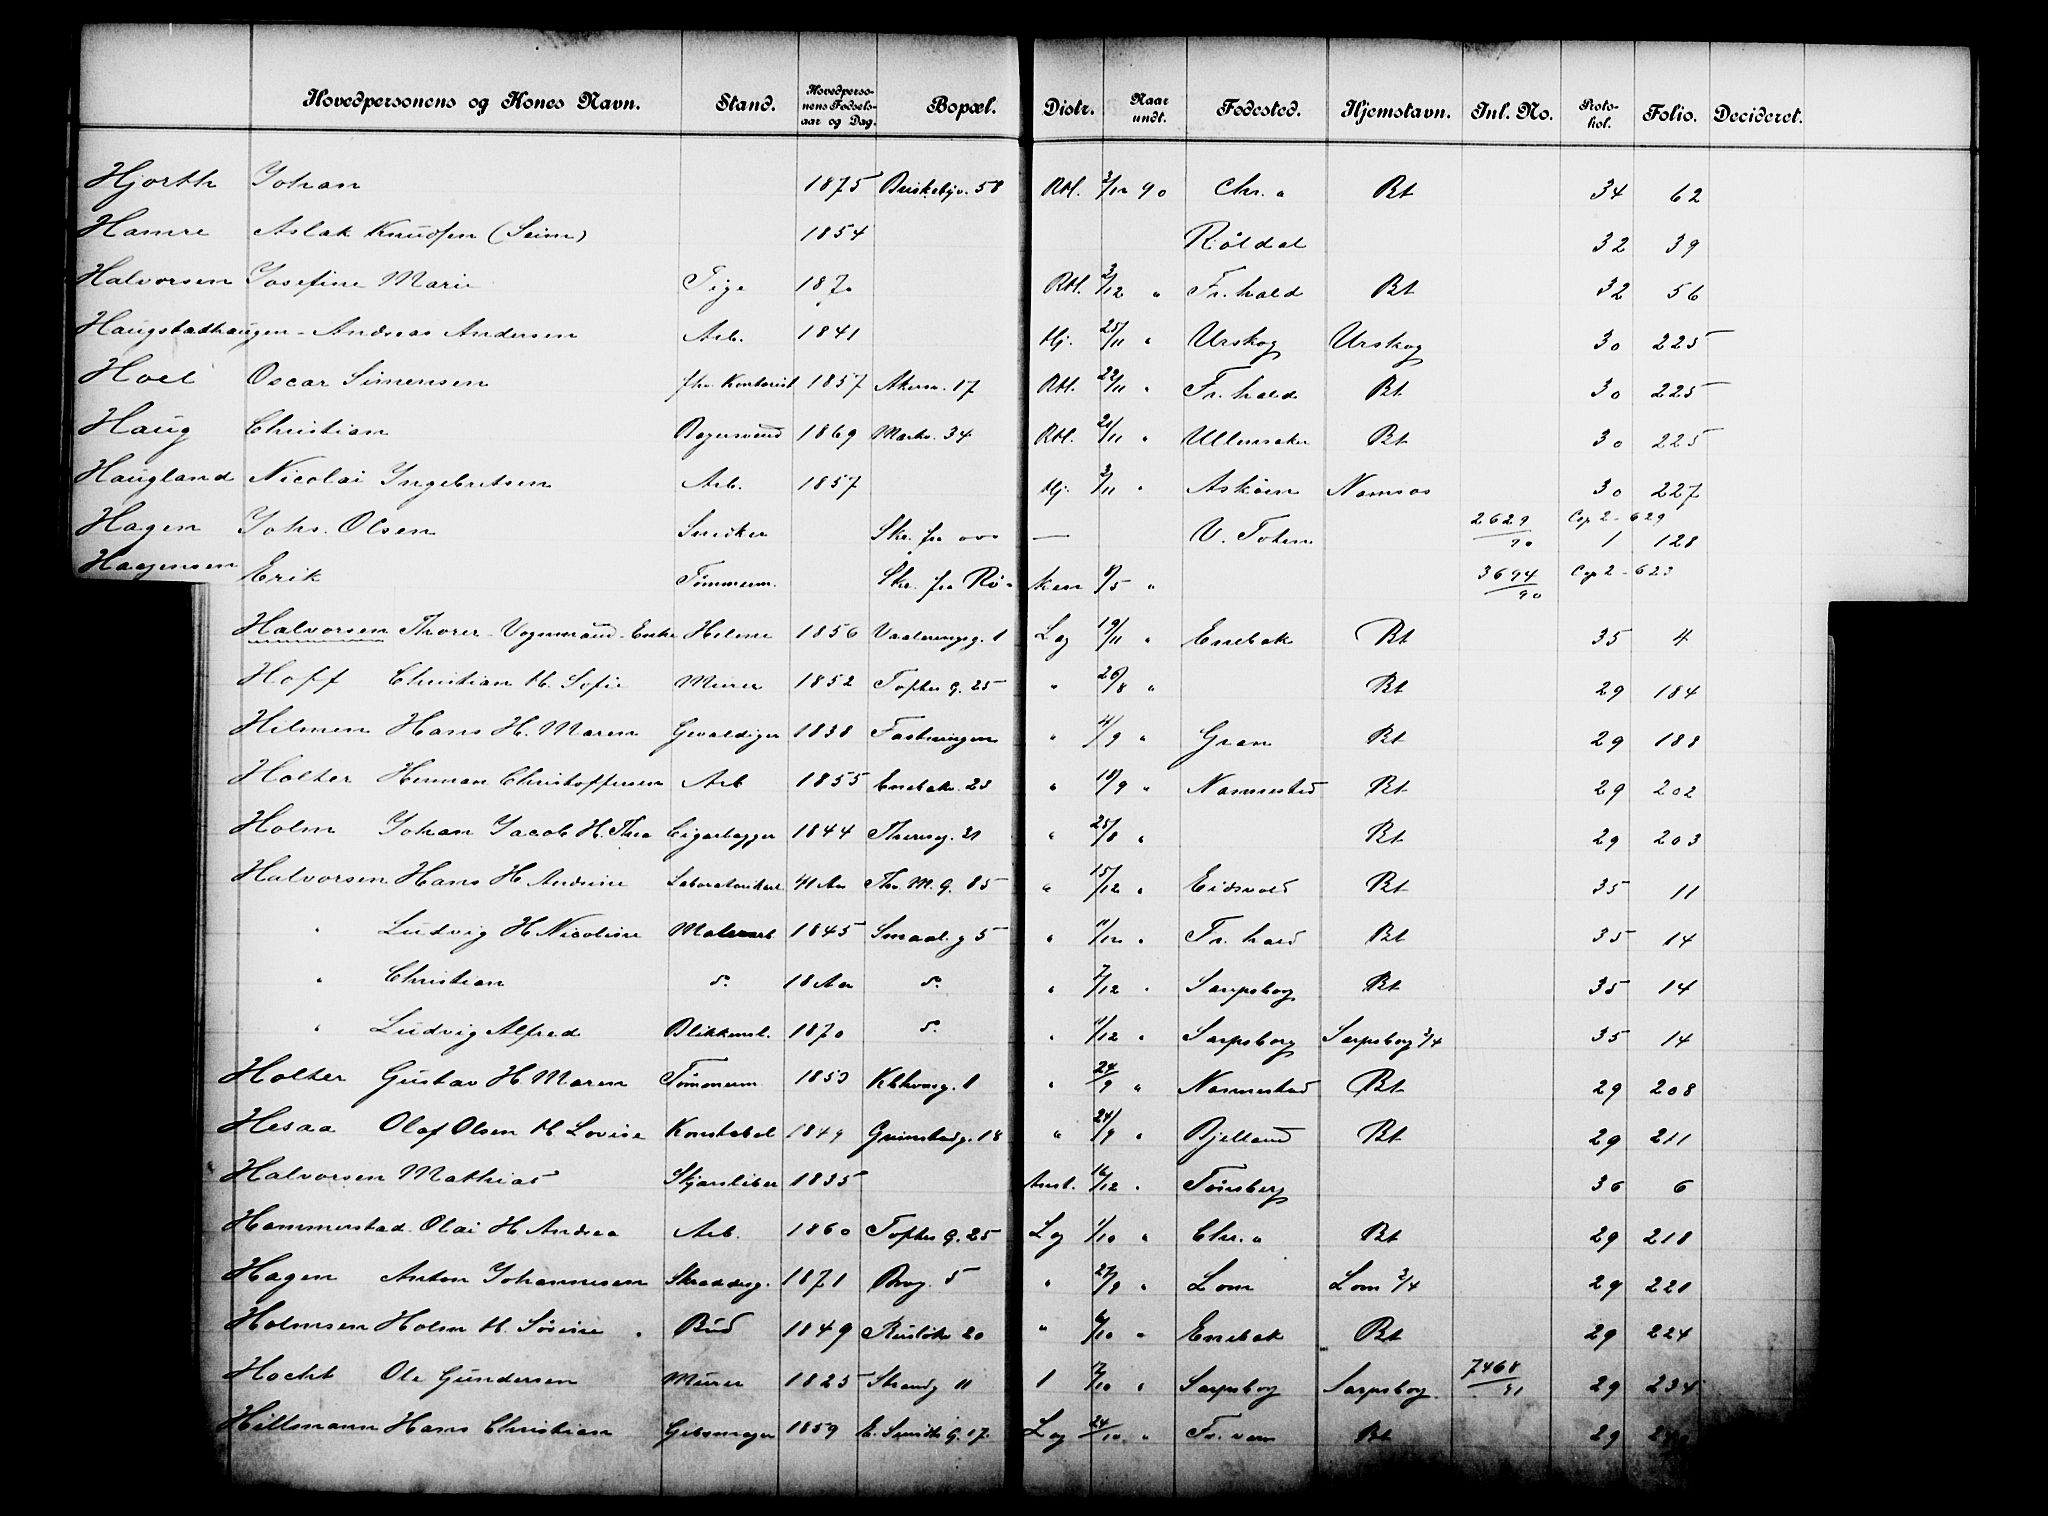 Hovedpersonens og Kones Navn. Stand. Hovedpersonens Fødselsaar og Dag. Bopæl. Distr. Naar undt. Fødested. Hjemstavn. Inl. No. Protokol. Folio. Decideret.
Hjorth Johan 1875 Briskebyv. 58 Rbl. 3/12 90 Chr.a Bt 34 62
Hamre Aslak Knudsen (Seim) 1854 Røldal 32 39
Halvorsen Josefine Marie Pige 1870 Rbl. 3/12 " Fr.hald Bt 32 56
Haugstadhaugen Andreas Andersen Arb. 1841 Hj. 25/11 " Urskog Urskog 30 225
Hoel Oscar Simensen fhv. Kontorist 1857 Akersv. 17 Rbl. 22/11 " Fr.hald Bt 30 225
Haug Christian Bagersvend 1869 Markv. 34 Rbl. 21/11 " Ullensaker Bt 30 225
Haugland Nicolai Ingebretsen Arb. 1857 Hj. 3/11 " Askøen Namsos 30 227
Hagen Johs. Olsen Snedker Skr. fra — V. Toten 2629/90 Cop 2 - 629 1 128
Haagensen Erik Tømmerm. Skr. fra Røken 9/5 " 3694/90 Cop 2 - 623
Halvorsen Thorer Vognmand Enke Helene 1856 Vaalerengg. 1 Log 19/11 " Enebak Bt 35 4
Hoff Christian H. Sofie Murer 1852 Toftes g. 25 " 26/8 " Bt 29 184
Hilmen Hans H. Maren Gevaldiger 1838 Fæstningen " 4/9 " Gran Bt 29 188
Holter Herman Christoffersen Arb 1855 Enebakv. 23 " 18/9 " Nannestad Bt 29 202
Holm Johan Jacob H. Thea Cigarlægger 1844 Theresg. 21 " 25/8 " Bt 29 203
Halvorsen Hans H. Andrine Laboratoriearb. 41 Aar Thv. M. g. 85 " 15/12 " Eidsvold Bt 35 11
" Ludvig H Nicoline Malerarb 1845 Smaal. g 5 " 11/12 " Fr.hald Bt 35 14
" Christian d. 18 Aar d. " 7/12 " Sarpsborg Bt 35 14
" Ludvig Alfred Blikkensl. 1870 d. " 11/12 " Sarpsborg Sarpsborg 3/4 35 14
Holter Gustav H. Maren Tømmerm 1853 g. 1 " 24/9 " Nannestad Bt 29 208
Hesaa Olaf Olsen H. Lovise Konstabel 1849 Grimstadg. 18 " 24/9 " Bjelland Bt 29 211
Halvorsen Mathias Skjærsliber 1835 Anst. 16/12 " Tønsberg 36 6
Hammerstad Olai H Andrea Arb. 1860 Toftes g. 25 Log 1/10 " Chr.a Bt 29 218
Hagen Anton Johannesen Skræddersv. 1871 Brog. 5 " 27/9 " Lom Lom 3/4 29 221
Holmsen Holm H. Sørine Bud 1849 Ruseløk 20 " 6/10 " Enebak Bt 29 224
Hocht Ole Gundersen Murer 1825 Strandg 11 1 17/10 " Sarpsborg Sarpsborg 7468/91 29 234
Hiltmann Hans Christian Gibsmager 1859 E. Sundts g. 17 Log 24/10 " Fr.værn Bt 29